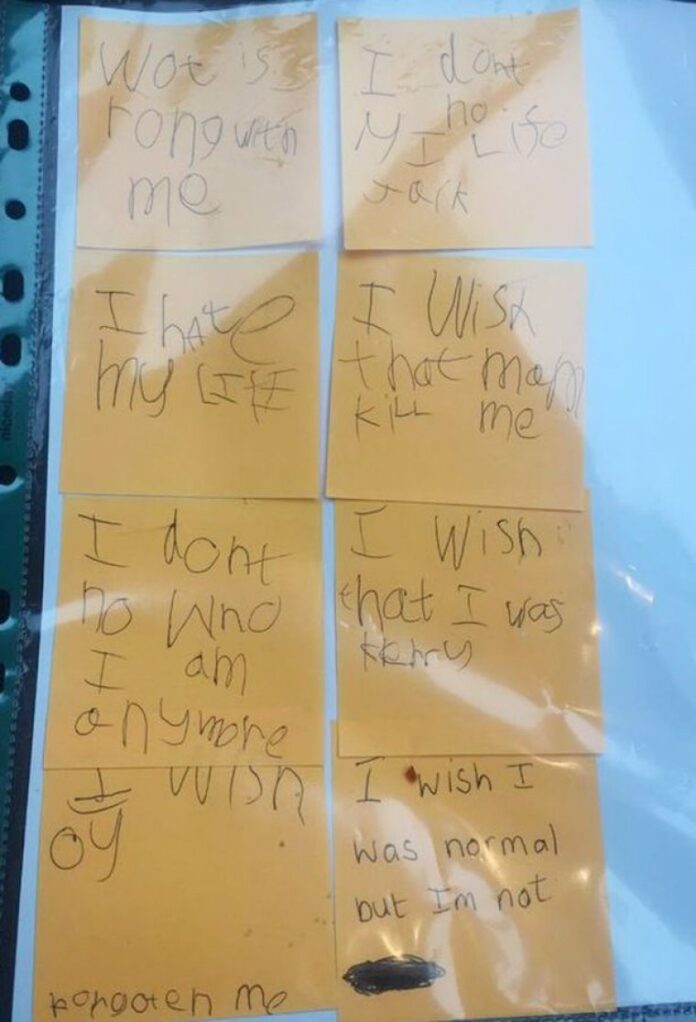 Wot is
rong with
me
I dont
no
Y I Life
I hate
my LIFE
I Wish
that mam
kill me
I dont
no who
I am
anymore
I wish
that I was
I wish
oy
me
I wish I
was normal
but Im not